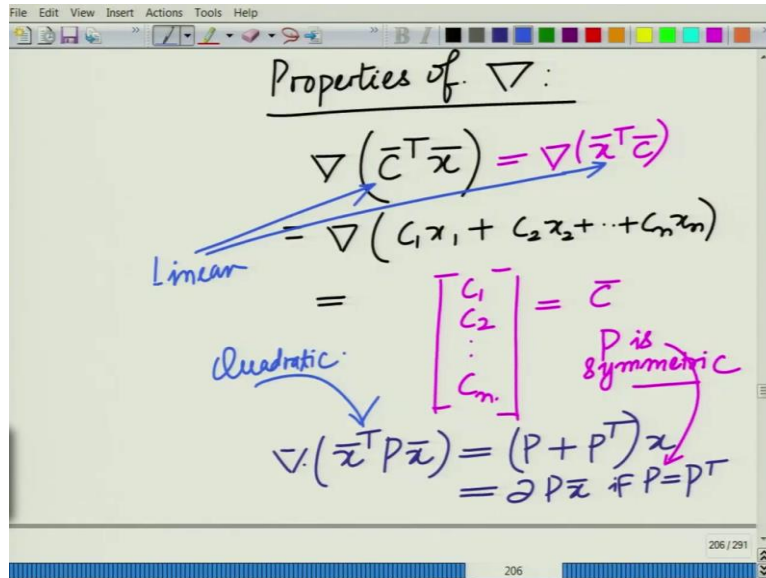 File Edit View Insert Actions Tools Help
Properties of ∇:
∇(c̄ᵀx̄) = ∇(x̄ᵀc̄)
= ∇(C₁x₁ + C₂x₂ + ·· + Cₙxₙ)
Linear
= [C₁ C₂ ⋮ Cₙ.] = c̄
Quadratic.
P is
symmetric
∇.(x̄ᵀPx̄) = (P + Pᵀ)x
= 2Px̄ if P=Pᵀ
206/291
206